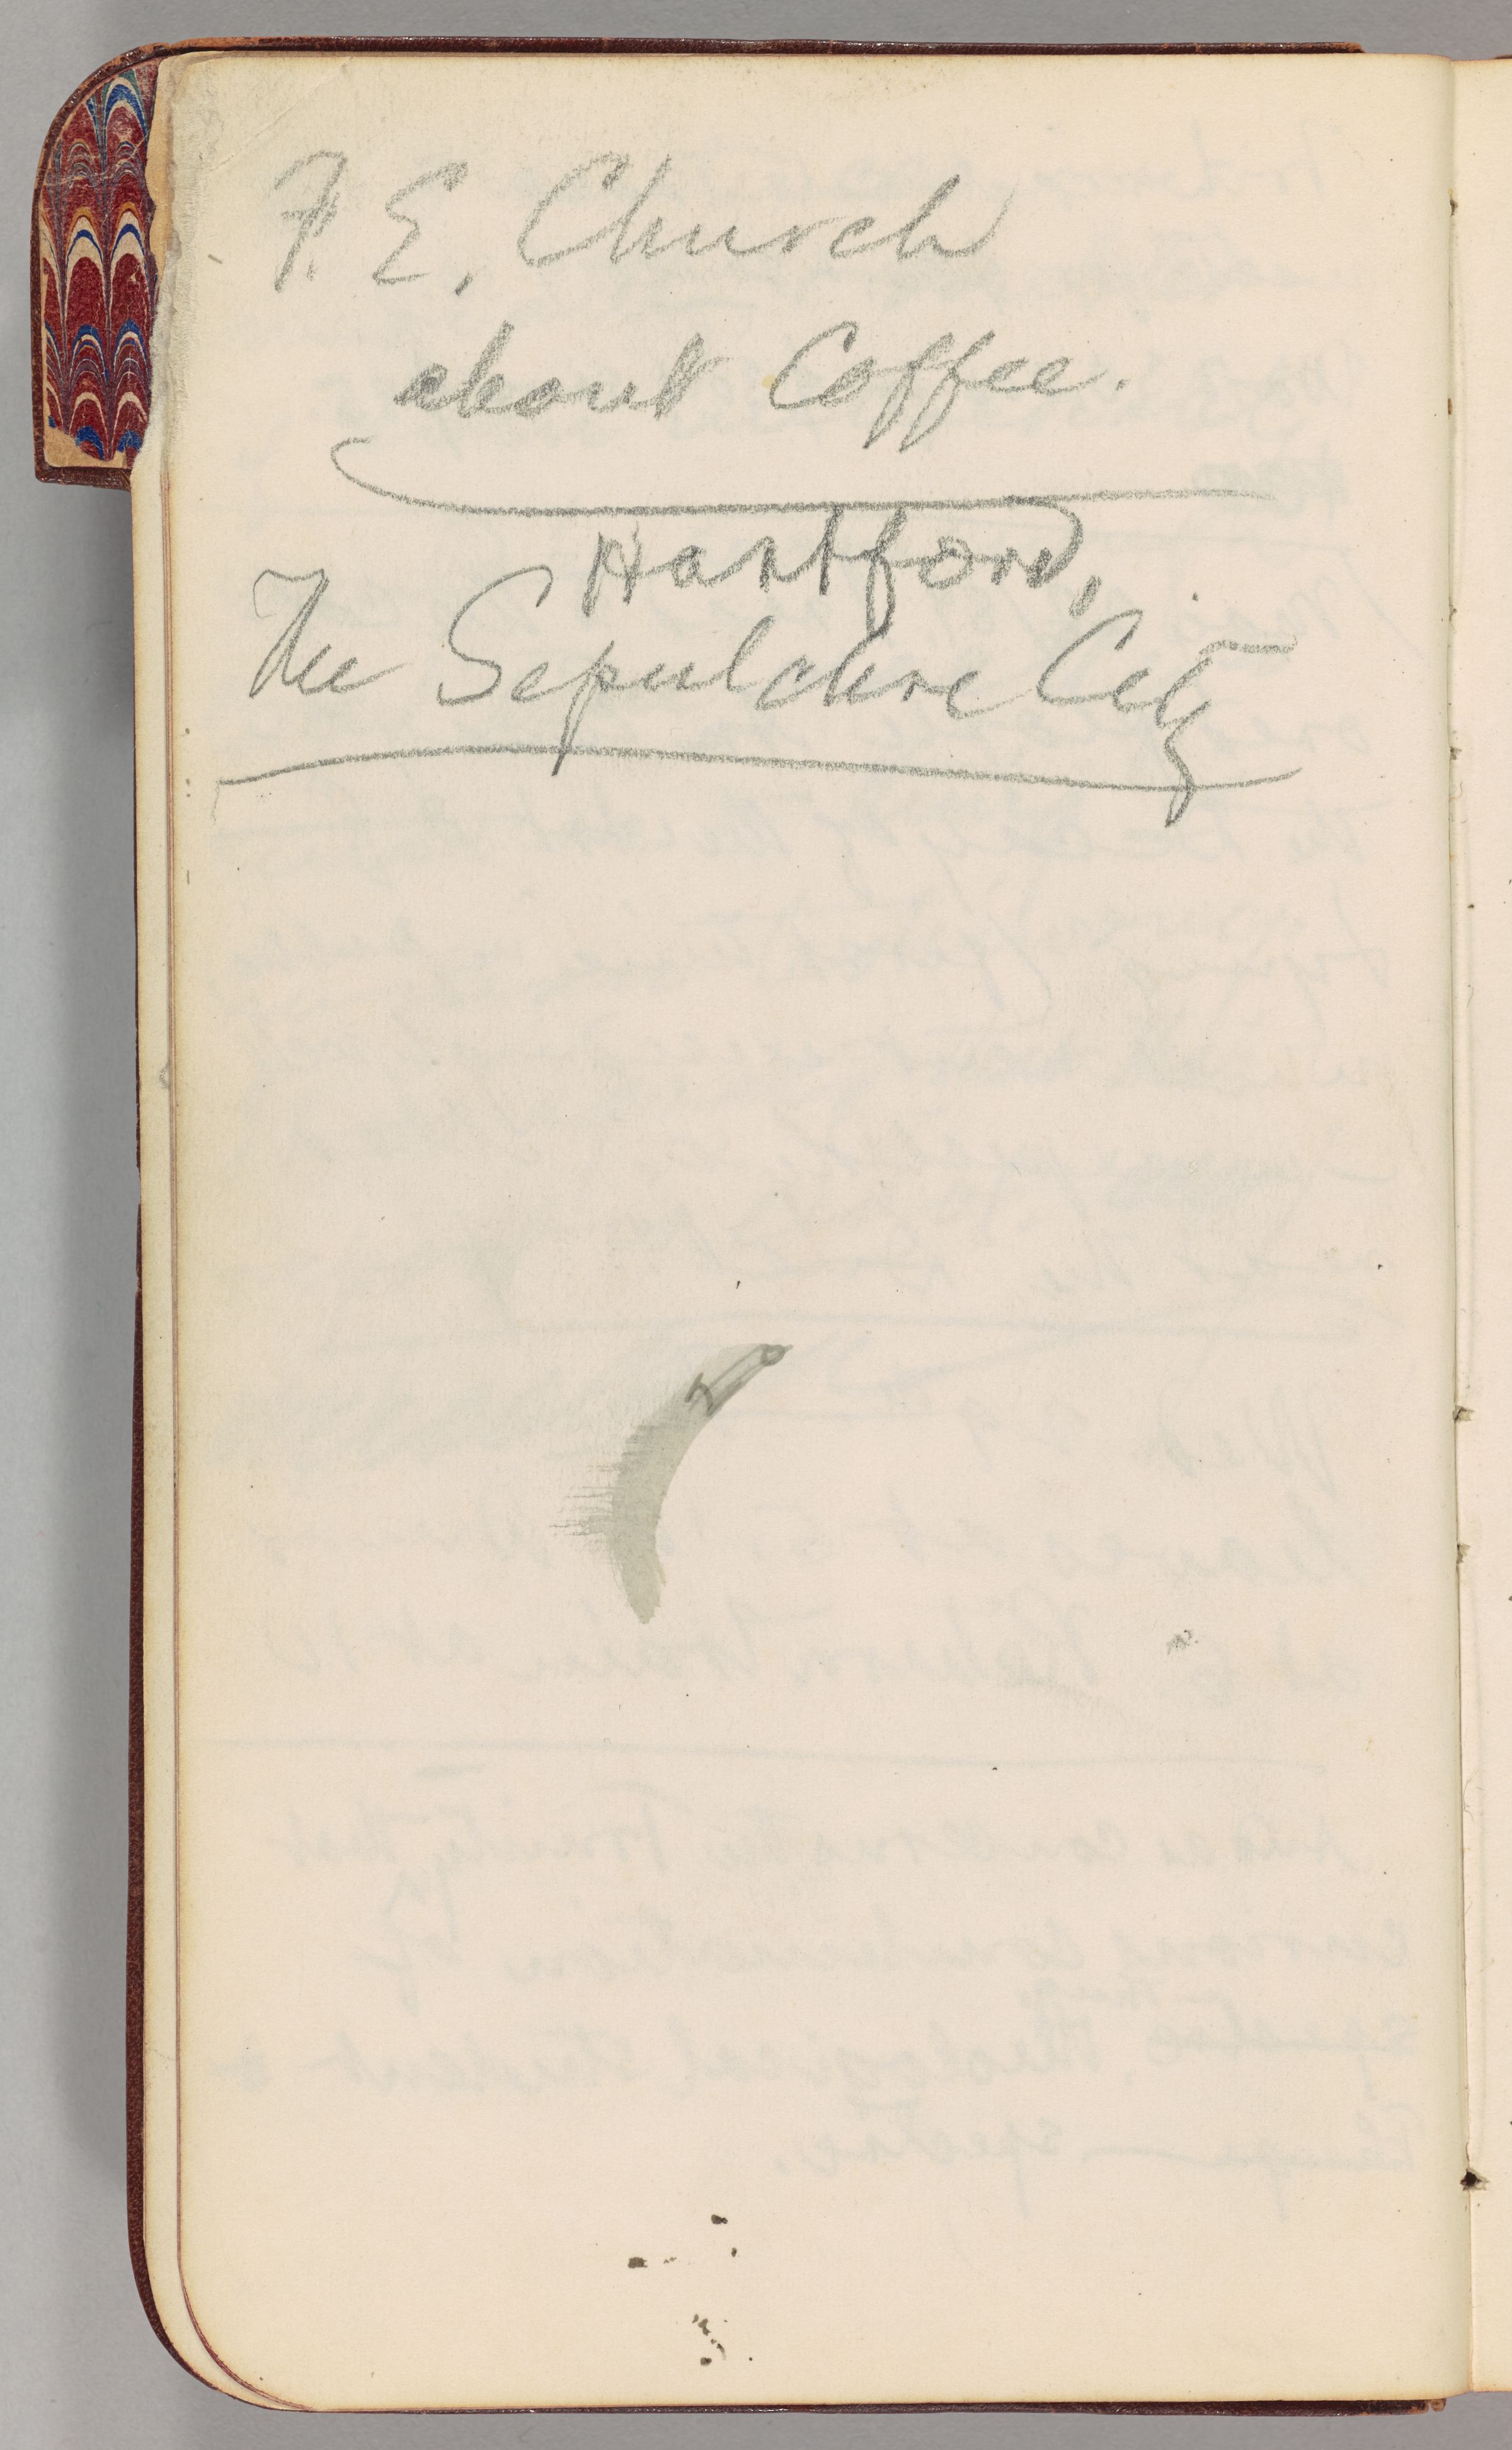 F. E. Church
about Coffee.
Hartford,
The Sepulchre City